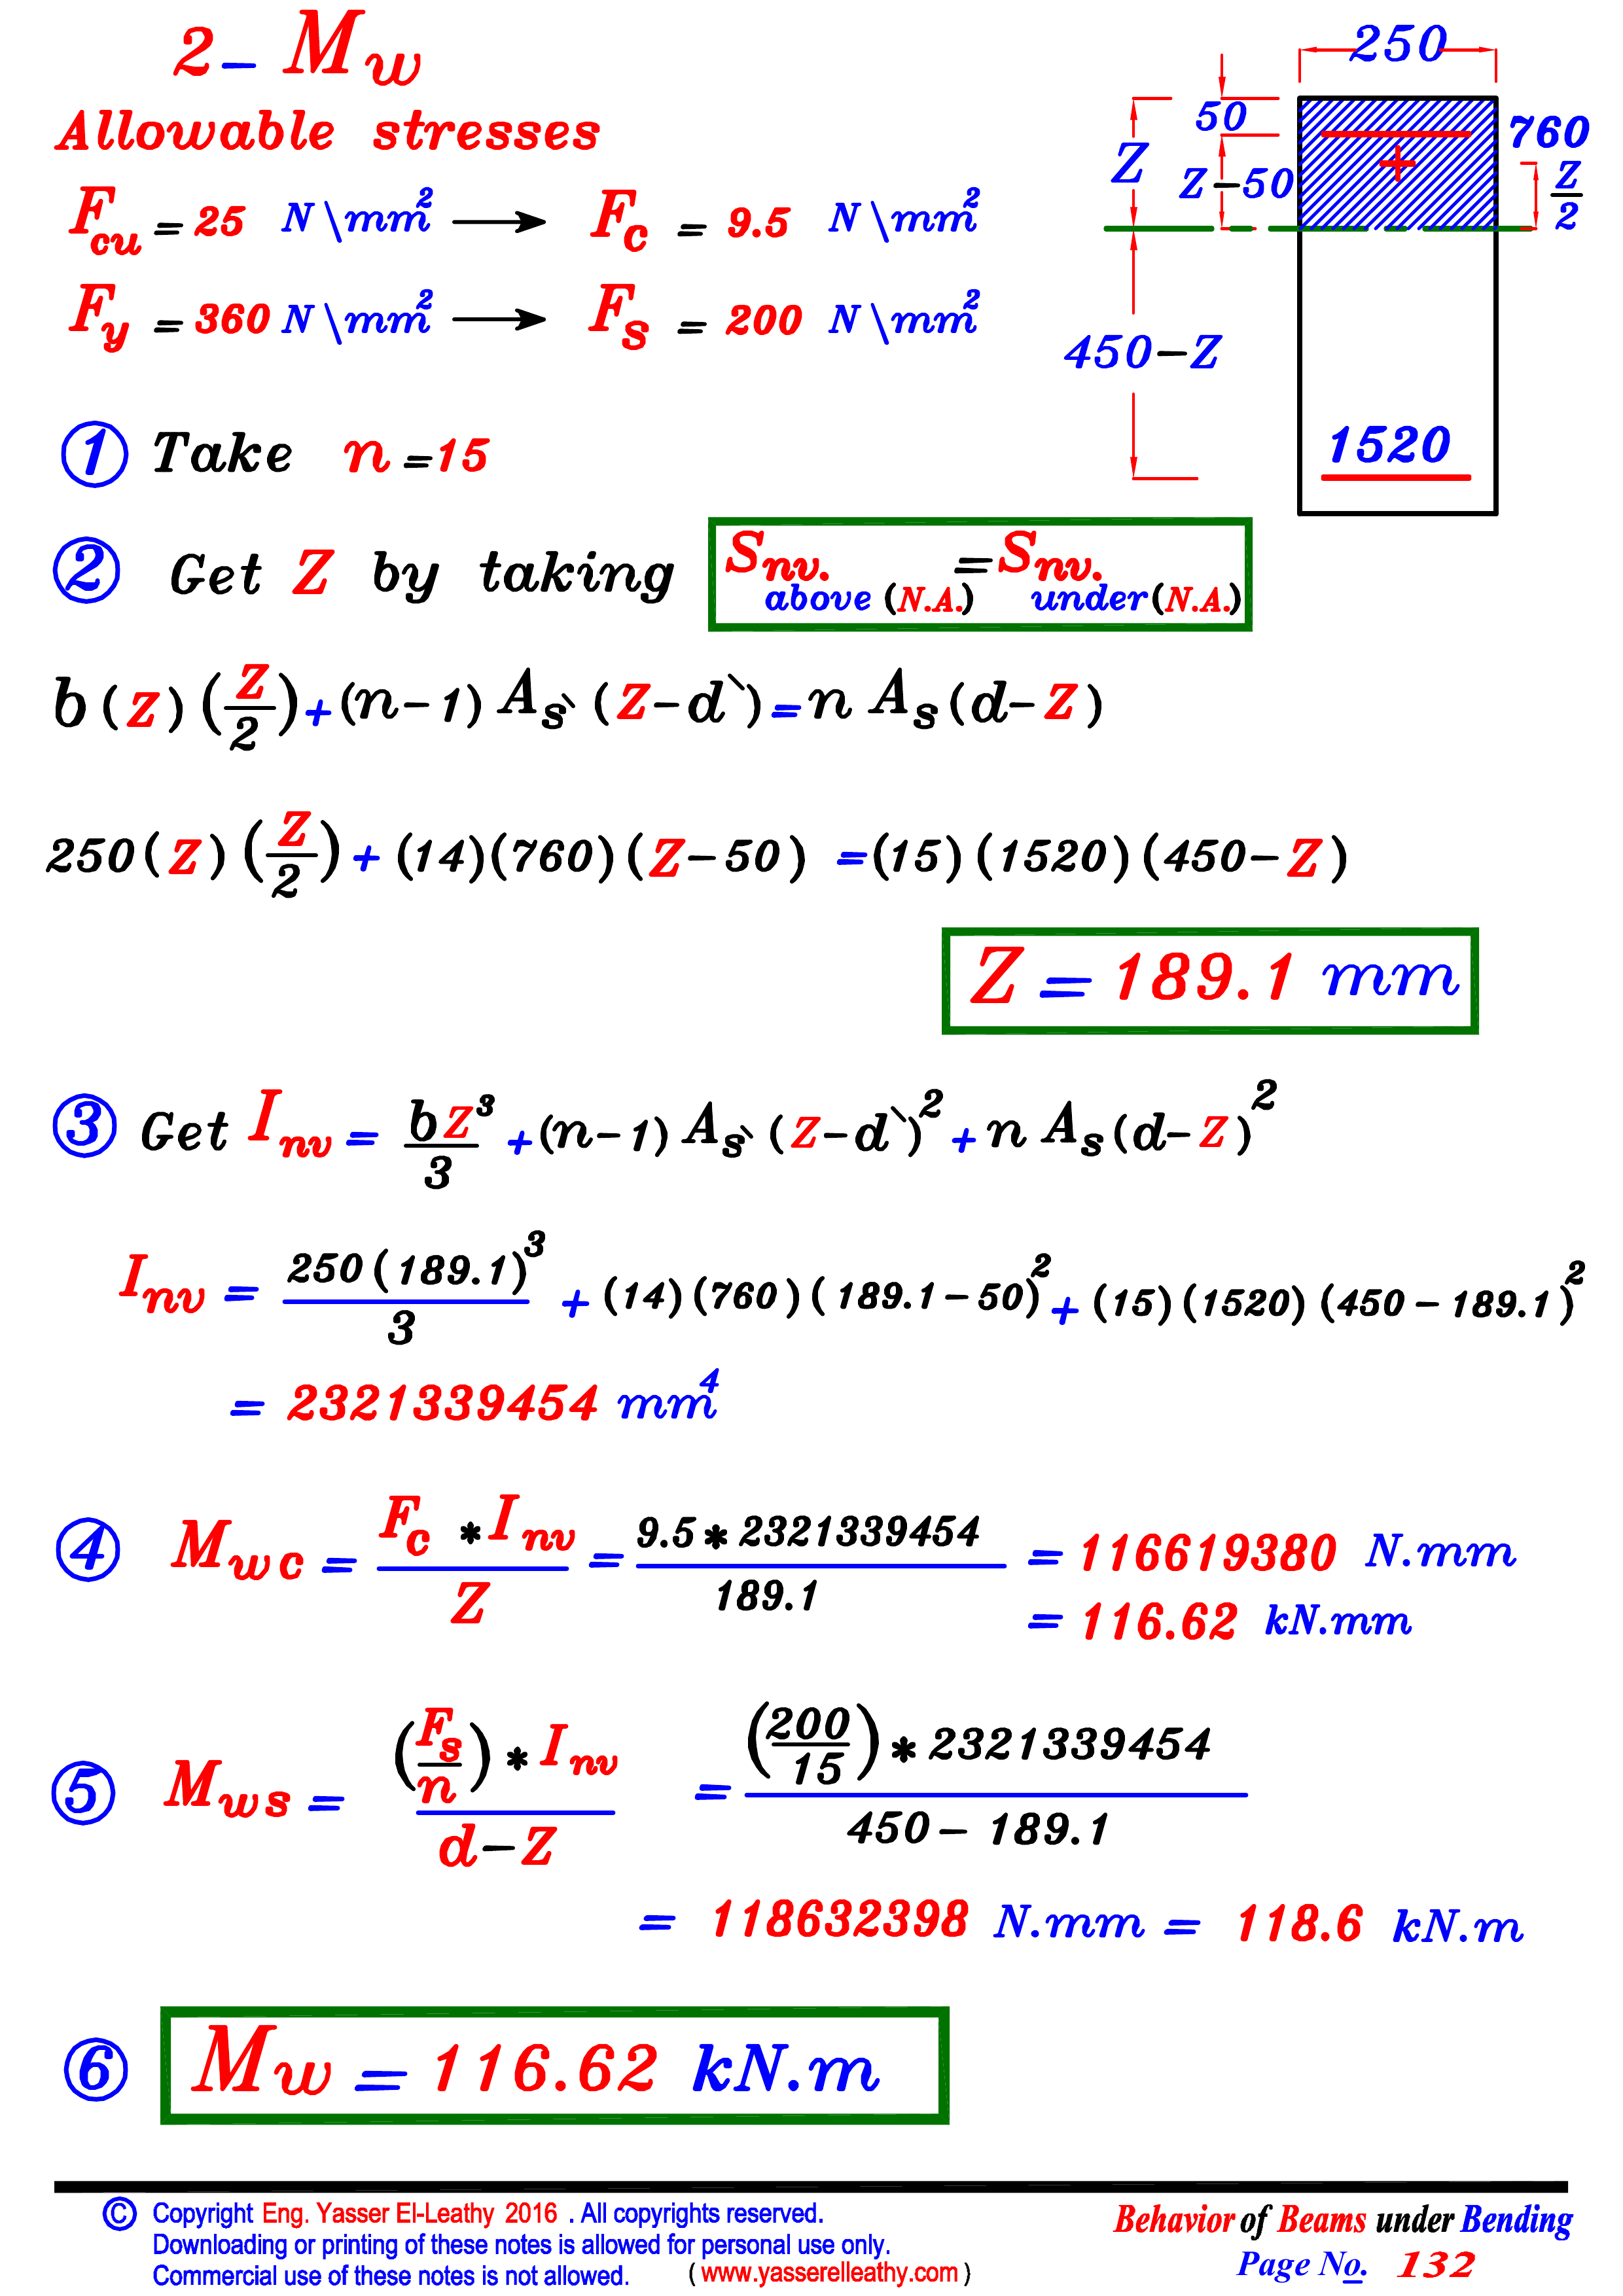 2- Mw
Allowable stresses
Fcu = 25 N\mm² → Fc = 9.5 N\mm²
Fy = 360 N\mm² → Fs = 200 N\mm²
250
50
Z
Z-50
760
Z/2
450-Z
1520
① Take n = 15
② Get Z by taking Snv. above (N.A.) = Snv. under (N.A.)
b (Z) (Z/2) + (n-1) As` (Z-d`) = n As (d-Z)
250 (Z) (Z/2) + (14)(760)(Z-50) = (15)(1520)(450-Z)
Z = 189.1 mm
③ Get Inv = bZ³/3 + (n-1) As` (Z-d`)² + n As (d-Z)²
Inv = 250(189.1)³/3 + (14)(760)(189.1-50)² + (15)(1520)(450-189.1)²
= 2321339454 mm⁴
④ Mwc = Fc * Inv / Z = 9.5 * 2321339454 / 189.1 = 116619380 N.mm
= 116.62 kN.mm
⑤ Mws = (Fs/n) * Inv / d-Z = (200/15) * 2321339454 / 450-189.1
= 118632398 N.mm = 118.6 kN.m
⑥ Mw = 116.62 kN.m
© Copyright Eng. Yasser El-Leathy 2016 . All copyrights reserved.
Downloading or printing of these notes is allowed for personal use only.
Commercial use of these notes is not allowed. ( www.yasserelleathy.com )
Behavior of Beams under Bending
Page No. 132